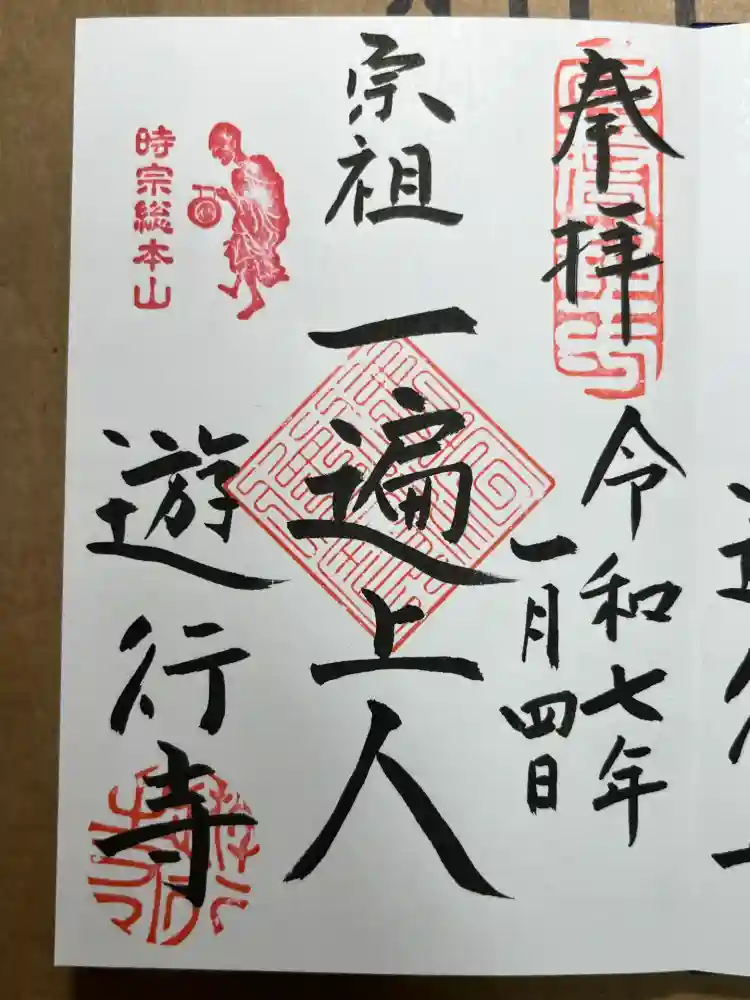 奉拝
令和七年
一月四日
宗祖
一遍上人
時宗総本山
遊行寺